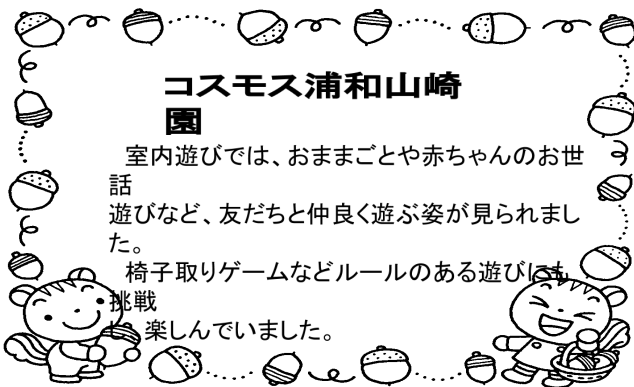 コスモス浦和山崎
園
室内遊びでは、おままごとや赤ちゃんのお世
話
遊びなど、友だちと仲良く遊ぶ姿が見られまし
た。
椅子取りゲームなどルールのある遊びにも
挑戦
し、楽しんでいました。